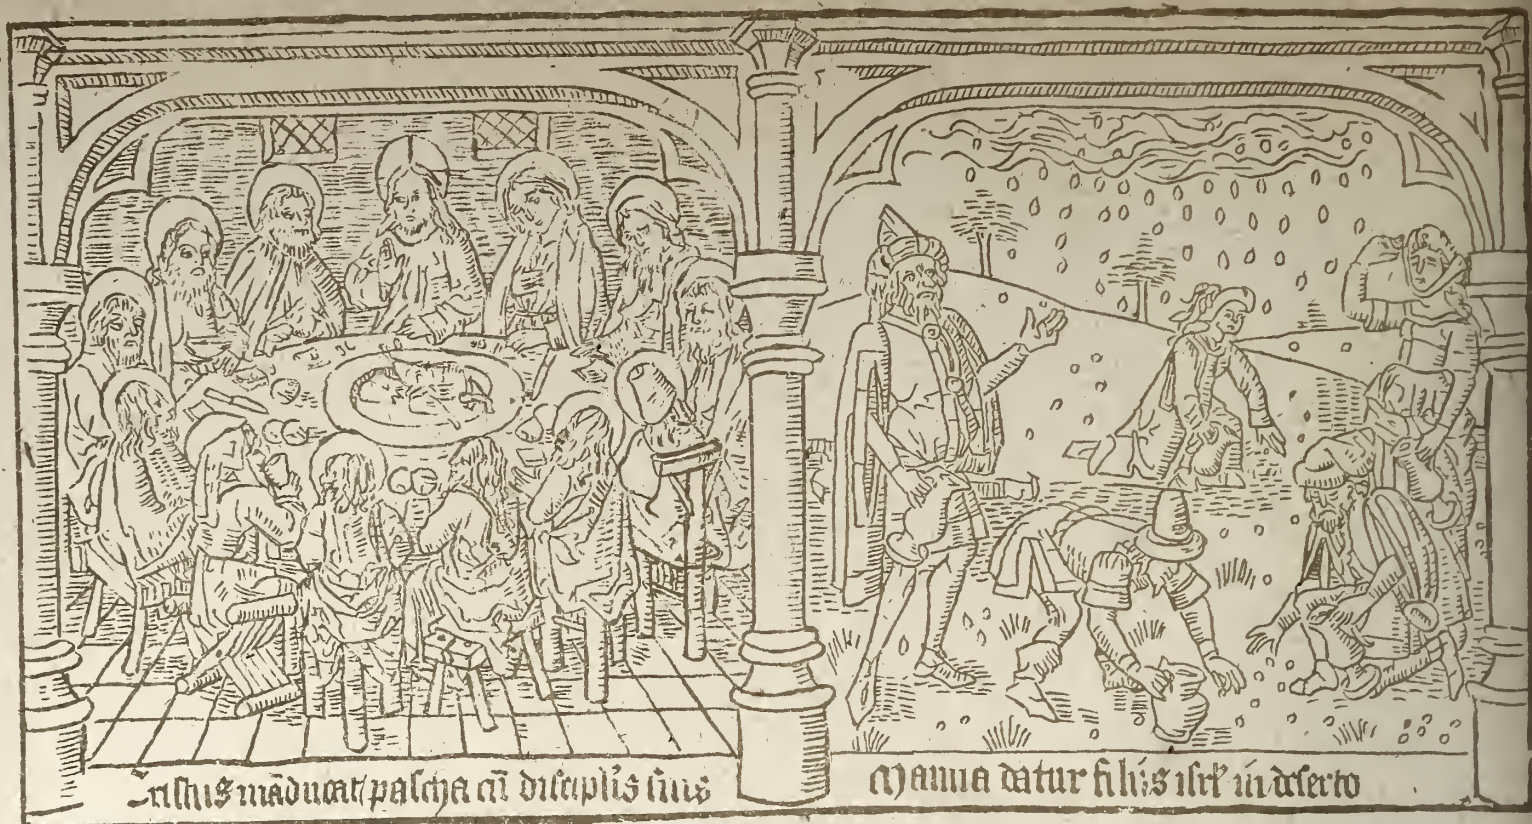 Cristus mãducat pascha cũ discipl̃is suis
Manna datur filijs isrl̃ in deserto